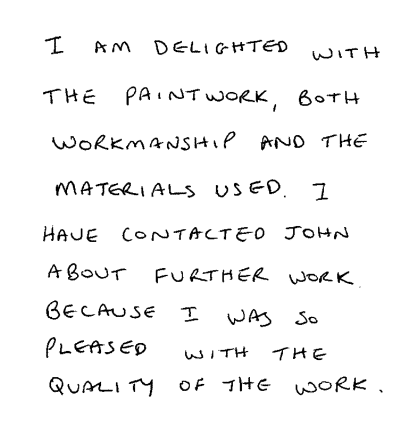 I AM DELIGHTED WITH
THE PAINTWORK, BOTH
WORKMANSHIP AND THE
MATERIALS USED. I
HAVE CONTACTED JOHN
ABOUT FURTHER WORK.
BECAUSE I WAS SO
PLEASED WITH THE
QUALITY OF THE WORK.